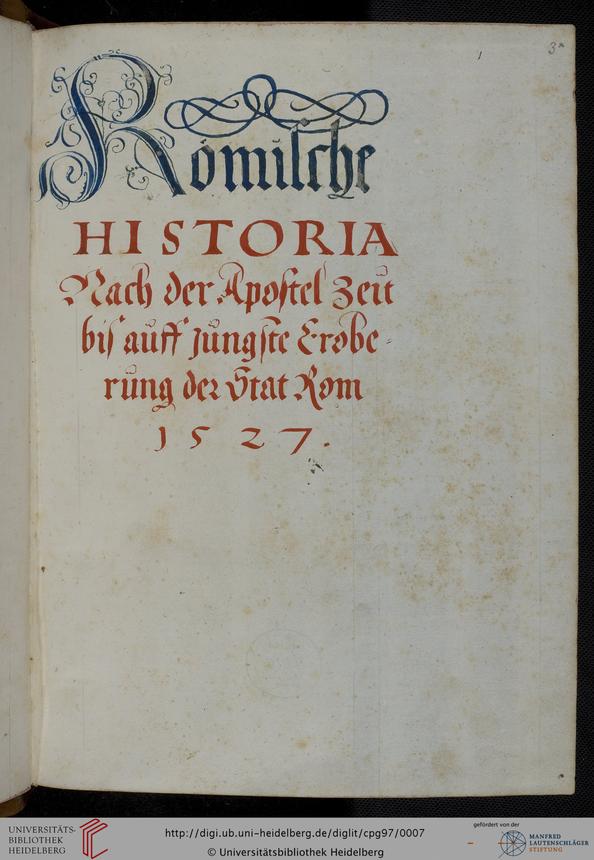 1
3ª
Römische
HISTORIA
Nach der Apostel Zeit
bis auff jungste Erobe-
rung der Stat Rom
1527.
UNIVERSITÄTS-
BIBLIOTHEK
HEIDELBERG
http://digi.ub.uni-heidelberg.de/diglit/cpg97/0007
© Universitätsbibliothek Heidelberg
gefördert von der
MANFRED
LAUTENSCHLÄGER
STIFTUNG